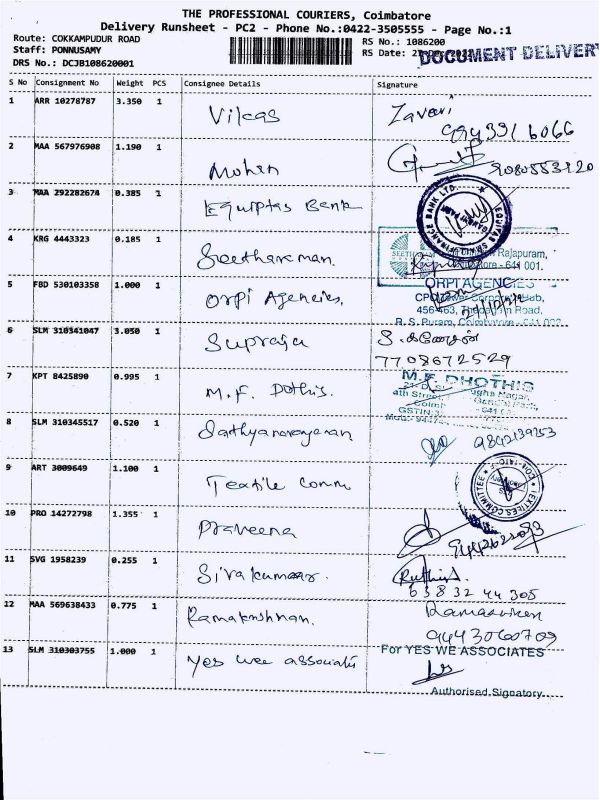 THE PROFESSIONAL COURIERS, Coimbatore
Delivery Runsheet - PC2 - Phone No.:0422-3505555 - Page No.:1
Route: COKKAMPUDUR ROAD
RS No.: 1086200
Staff: PONNUSAMY
RS Date:
DOCUMENT DELIVER
DRS No.: DCJB108620001
S No Consignment No Weight PCS Consignee Details Signature
1 ARR 10278787 3.350 1 Vikas Zaveri
2 MAA 567976908 1.190 1 Mohen
3 MAA 292282674 0.385 1 Equiptas Bank
EQUITAS SMALL FINANCE BANK LTD.
4 KRG 4443323 0.185 1 Seetharaman.
Rajapuram,
641 001.
5 FBD 530103358 1.000 1 Orpi Agencies,
ORPI AGENCIES
456-463, Road,
R. S. Puram, Coimbatore
6 SLM 310341047 3.050 1 Supraja
7708672529
7 KPT 8425890 0.995 1 M.F. Dothis.
M.F. DHOTHIS
4th Street
GSTIN:3
8 SLM 310345517 0.520 1 Sathyanarayanan
9842139253
9 ART 3009649 1.100 1 Textile Comm
TEXTILES COMMITTEE
10 PRO 14272798 1.355 1 Praveena
11 SVG 1958239 0.255 1 Sivakumaar.
63832 44305
12 MAA 569638433 0.775 1 Ramakrishnan.
9443060709
13 SLM 310303755 1.000 1 Yes wee associats
For YES WE ASSOCIATES
Authorised Signatory